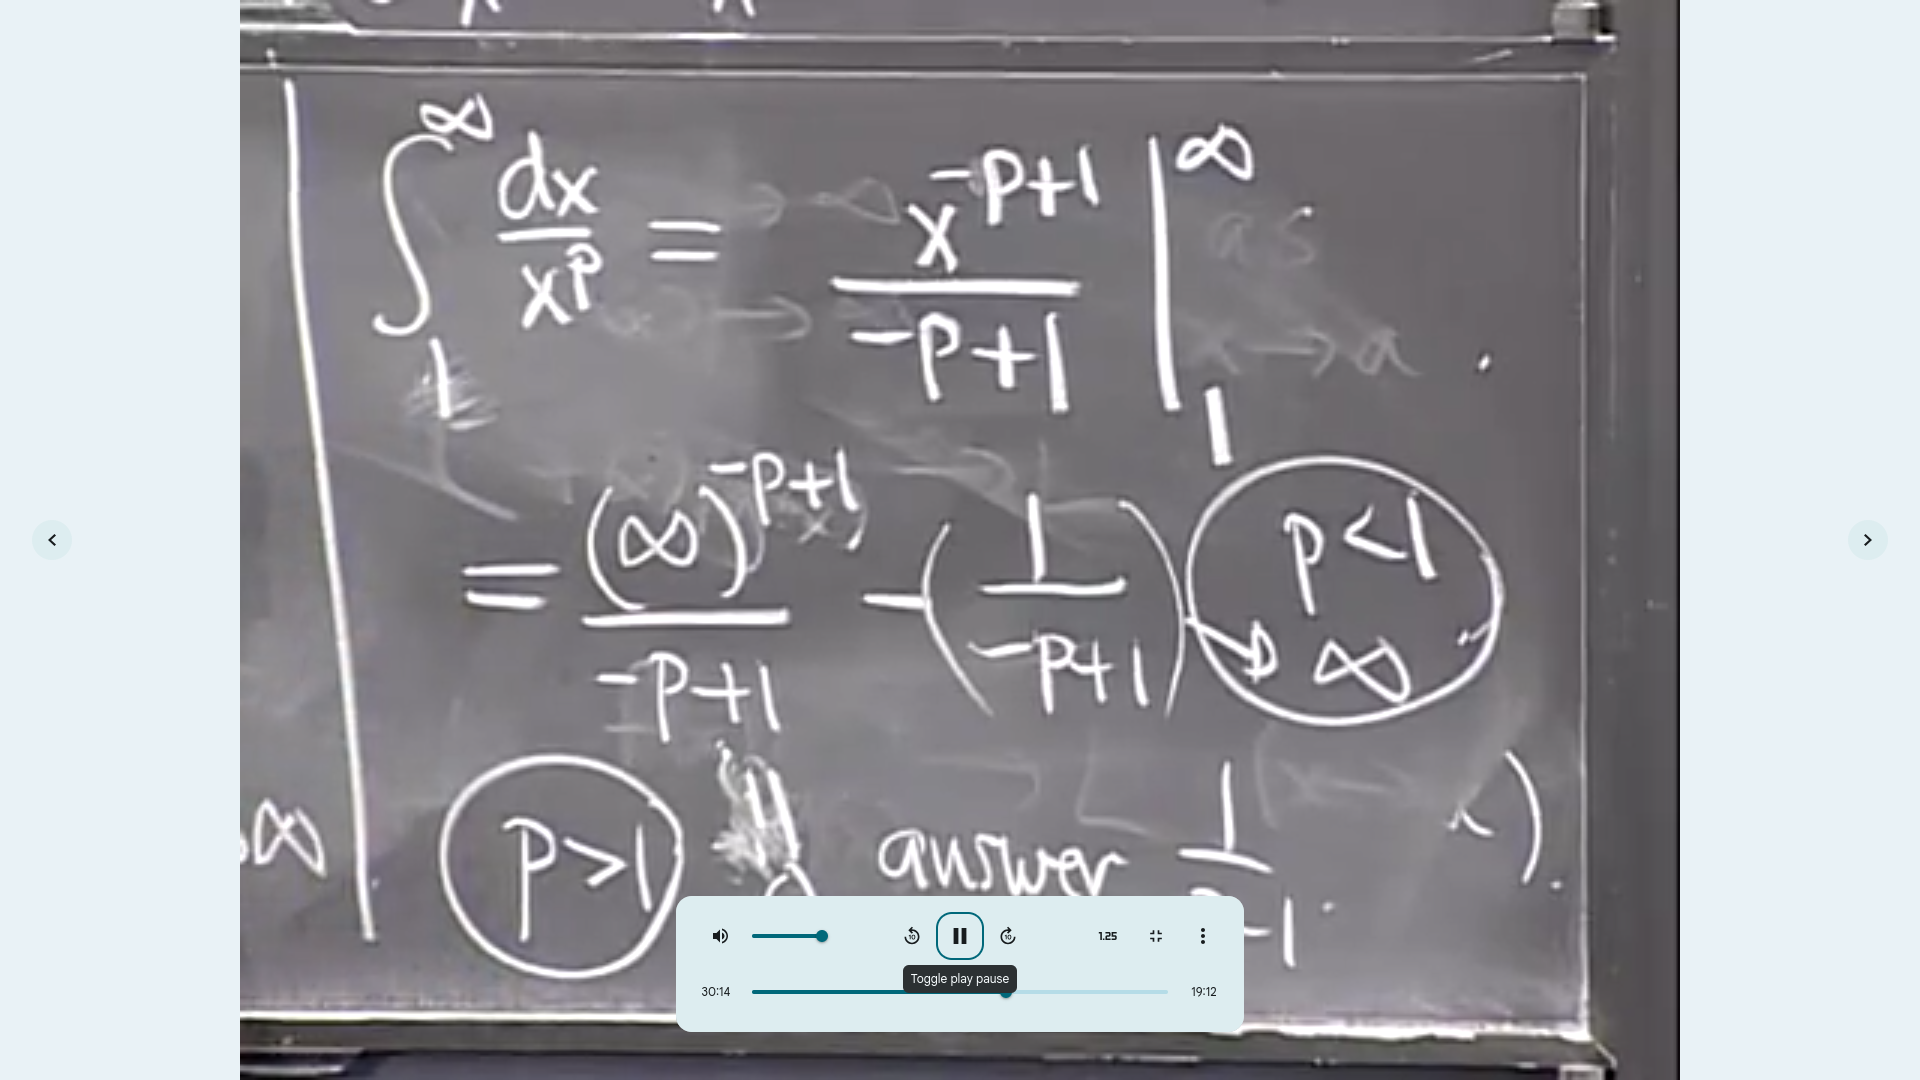 ∫₁^∞ dx/x^p = x^(-p+1)/(-p+1) |₁^∞
= (∞)^(-p+1)/(-p+1) - (1/(-p+1)) p<1 → ∞
∞ p>1 answer 1/
-1
1.25
Toggle play pause
30:14 19:12